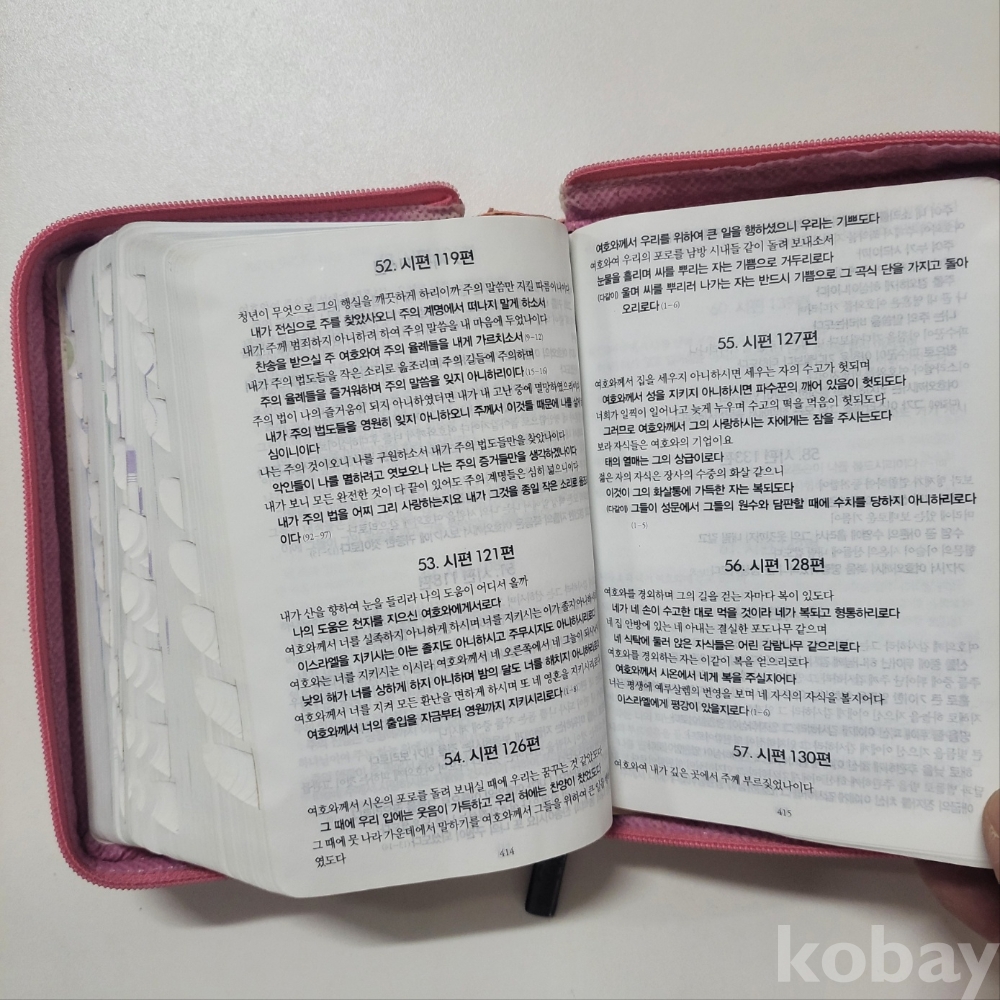 52. 시편 119편
청년이 무엇으로 그의 행실을 깨끗하게 하리이까 주의 말씀만 지킬 따름이니이다
내가 전심으로 주를 찾았사오니 주의 계명에서 떠나지 말게 하소서
내가 주께 범죄하지 아니하려 하여 주의 말씀을 내 마음에 두었나이다
찬송을 받으실 주 여호와여 주의 율례들을 내게 가르치소서 (9-12)
내가 주의 법도들을 작은 소리로 읊조리며 주의 길들에 주의하며
주의 율례들을 즐거워하며 주의 말씀을 잊지 아니하리이다 (15-16)
주의 법이 나의 즐거움이 되지 아니하였더면 내가 내 고난 중에 멸망하였으리이다
내가 주의 법도들을 영원히 잊지 아니하오니 주께서 이것들 때문에 나를
심이니이다
나는 주의 것이오니 나를 구원하소서 내가 주의 법도들만을 찾았나이다
악인들이 나를 멸하려고 엿보오나 나는 주의 증거들만을 생각하겠나이다
내가 보니 모든 완전한 것이 다 끝이 있어도 주의 계명들은 심히 넓으니이다
내가 주의 법을 어찌 그리 사랑하는지요 내가 그것을 종일 작은 소리로
이다 (92-97)
53. 시편 121편
내가 산을 향하여 눈을 들리라 나의 도움이 어디서 올까
나의 도움은 천지를 지으신 여호와에게서로다
여호와께서 너를 실족하지 아니하게 하시며 너를 지키시는 이가 졸지 아니하시리로다
이스라엘을 지키시는 이는 졸지도 아니하시고 주무시지도 아니하시리로다
여호와는 너를 지키시는 이시라 여호와께서 네 오른쪽에서 네 그늘이 되시나니
낮의 해가 너를 상하게 하지 아니하며 밤의 달도 너를 해치지 아니하리로다
여호와께서 너를 지켜 모든 환난을 면하게 하시며 또 네 영혼을 지키시리로다
여호와께서 너의 출입을 지금부터 영원까지 지키시리로다 (1-8)
54. 시편 126편
여호와께서 시온의 포로를 돌려 보내실 때에 우리는 꿈꾸는 것 같았도다
그 때에 우리 입에는 웃음이 가득하고 우리 혀에는 찬양이 찼었도다
그 때에 뭇 나라 가운데에서 말하기를 여호와께서 그들을 위하여 큰 일을
였도다
414
여호와께서 우리를 위하여 큰 일을 행하셨으니 우리는 기쁘도다
여호와여 우리의 포로를 남방 시내들 같이 돌려 보내소서
눈물을 흘리며 씨를 뿌리는 자는 기쁨으로 거두리로다
(다같이) 울며 씨를 뿌리러 나가는 자는 반드시 기쁨으로 그 곡식 단을 가지고 돌아
오리로다 (1-6)
55. 시편 127편
여호와께서 집을 세우지 아니하시면 세우는 자의 수고가 헛되며
여호와께서 성을 지키지 아니하시면 파수꾼의 깨어 있음이 헛되도다
너희가 일찍이 일어나고 늦게 누우며 수고의 떡을 먹음이 헛되도다
그러므로 여호와께서 그의 사랑하시는 자에게는 잠을 주시는도다
보라 자식들은 여호와의 기업이요
태의 열매는 그의 상급이로다
젊은 자의 자식은 장사의 수중의 화살 같으니
이것이 그의 화살통에 가득한 자는 복되도다
(다같이) 그들이 성문에서 그들의 원수와 담판할 때에 수치를 당하지 아니하리로다
(1-5)
56. 시편 128편
여호와를 경외하며 그의 길을 걷는 자마다 복이 있도다
네가 네 손이 수고한 대로 먹을 것이라 네가 복되고 형통하리로다
네 집 안방에 있는 네 아내는 결실한 포도나무 같으며
네 식탁에 둘러 앉은 자식들은 어린 감람나무 같으리로다
여호와를 경외하는 자는 이같이 복을 얻으리로다
여호와께서 시온에서 네게 복을 주실지어다
너는 평생에 예루살렘의 번영을 보며 네 자식의 자식을 볼지어다
이스라엘에게 평강이 있을지로다 (1-6)
57. 시편 130편
여호와여 내가 깊은 곳에서 주께 부르짖었나이다
415
kobay